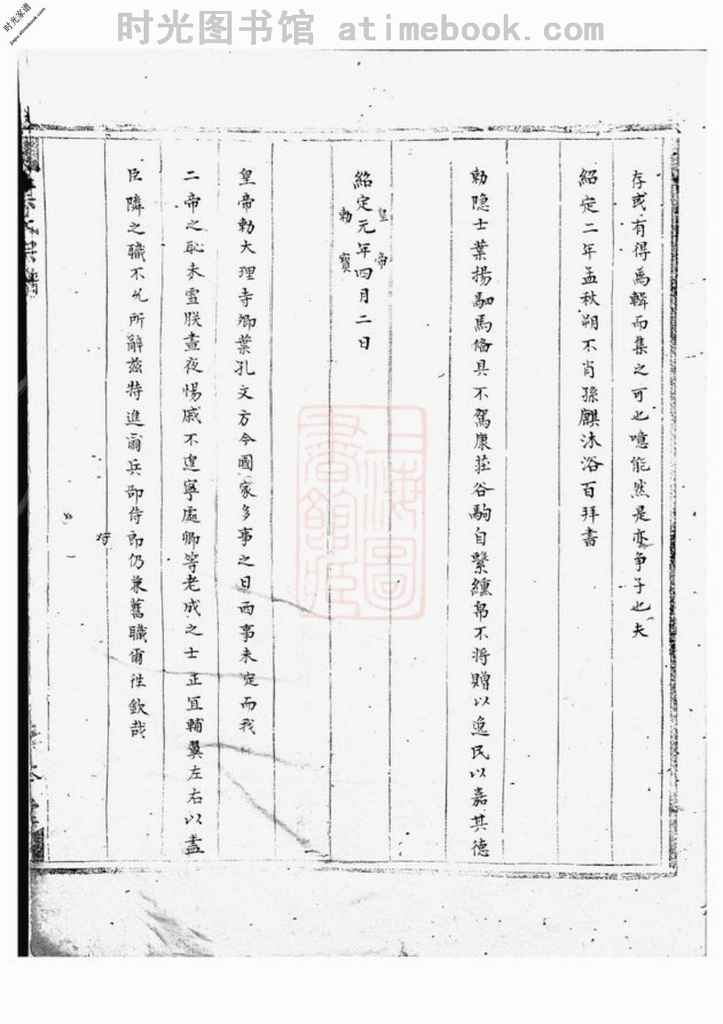 时光图书馆 atimebook.com
时光家谱
jiapu.atimebook.com
存或有得為輯而集之可也噫能然是亦争子也夫
紹定二年孟秋朔不肖孫麒沐浴百拜書
勅隐士葉揚駟馬俻具不駕康莊谷駒自縶纁帛不将贈以逸民以嘉其德
皇帝
紹定元年四月二日
勅寶
皇帝勅大理寺卿葉孔文方今國家多事之日西事未定而我
二帝之恥未雪朕晝夜惕戚不遑寧處卿等老成之士正宜輔翼左右以盡
臣隣之職不允所辭兹特進爾兵部侍郎仍兼舊職爾往欽哉
侍
葉氏宗譜
上海圖書館藏